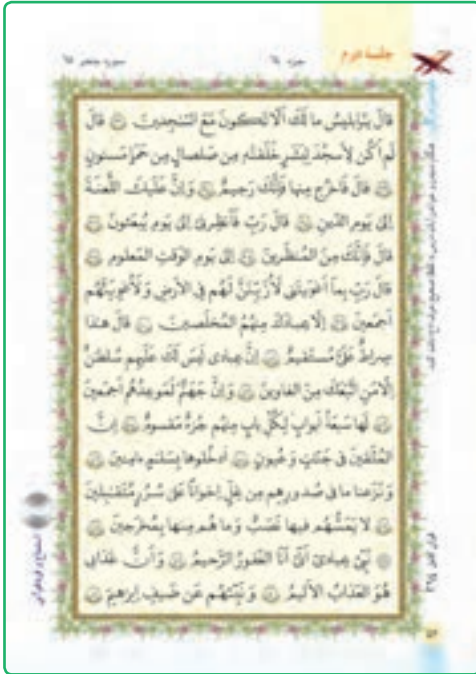 جلسه دوم
جزء ١٤
سوره حجر ١٥
قالَ يٰإِبليسُ ما لَكَ أَلّا تَكونَ مَعَ السّٰجِدينَ ﴿٣٢﴾ قالَ
لَم أَكُن لِأَسجُدَ لِبَشَرٍ خَلَقتَهُ مِن صَلصالٍ مِن حَمَإٍ مَسنونٍ
﴿٣٣﴾ قالَ فَاخرُج مِنها فَإِنَّكَ رَجيمٌ ﴿٣٤﴾ وَإِنَّ عَلَيكَ اللَّعنَةَ
إِلىٰ يَومِ الدّينِ ﴿٣٥﴾ قالَ رَبِّ فَأَنظِرني إِلىٰ يَومِ يُبعَثونَ ﴿٣٦﴾
قالَ فَإِنَّكَ مِنَ المُنظَرينَ ﴿٣٧﴾ إِلىٰ يَومِ الوَقتِ المَعلومِ ﴿٣٨﴾
قالَ رَبِّ بِما أَغوَيتَني لَأُزَيِّنَنَّ لَهُم فِي الأَرضِ وَلَأُغوِيَنَّهُم
أَجمَعينَ ﴿٣٩﴾ إِلّا عِبادَكَ مِنهُمُ المُخلَصينَ ﴿٤٠﴾ قالَ هٰذا
صِراطٌ عَلَيَّ مُستَقيمٌ ﴿٤١﴾ إِنَّ عِبادي لَيسَ لَكَ عَلَيهِم سُلطٰنٌ
إِلّا مَنِ اتَّبَعَكَ مِنَ الغاوينَ ﴿٤٢﴾ وَإِنَّ جَهَنَّمَ لَمَوعِدُهُم أَجمَعينَ
﴿٤٣﴾ لَها سَبعَةُ أَبوابٍ لِكُلِّ بابٍ مِنهُم جُزءٌ مَقسومٌ ﴿٤٤﴾ إِنَّ
المُتَّقينَ في جَنّٰتٍ وَعُيونٍ ﴿٤٥﴾ اُدخُلوها بِسَلٰمٍ ءامِنينَ ﴿٤٦﴾
وَنَزَعنا ما في صُدورِهِم مِن غِلٍّ إِخوانًا عَلىٰ سُرُرٍ مُتَقٰبِلينَ
﴿٤٧﴾ لا يَمَسُّهُم فيها نَصَبٌ وَما هُم مِنها بِمُخرَجينَ ﴿٤٨﴾
نَبِّئ عِبادي أَنّي أَنَا الغَفورُ الرَّحيمُ ﴿٤٩﴾ وَأَنَّ عَذابي
هُوَ العَذابُ الأَليمُ ﴿٥٠﴾ وَنَبِّئهُم عَن ضَيفِ إِبرٰهيمَ ﴿٥١﴾
٥٣